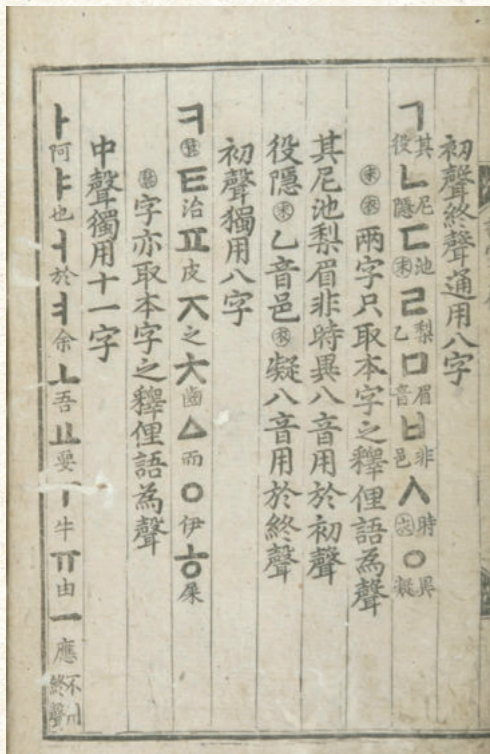 初聲終聲通用八字
ㄱ其役ㄴ尼隱ㄷ池末ㄹ梨乙ㅁ眉音ㅂ非邑ㅅ時衣ㆁ異凝
末衣兩字只取本字之釋俚語爲聲
其尼池梨眉非時異八音用於初聲
役隱末乙音邑衣凝八音用於終聲
初聲獨用八字
ㅋ箕ㅌ治ㅍ皮ㅈ之ㅊ齒ㅿ而ㅇ伊ㅎ屎
箕字亦取本字之釋俚語爲聲
中聲獨用十一字
ㅏ阿ㅑ也ㅓ於ㅕ余ㅗ吾ㅛ要ㅜ牛ㅠ由ㅡ應不用終聲